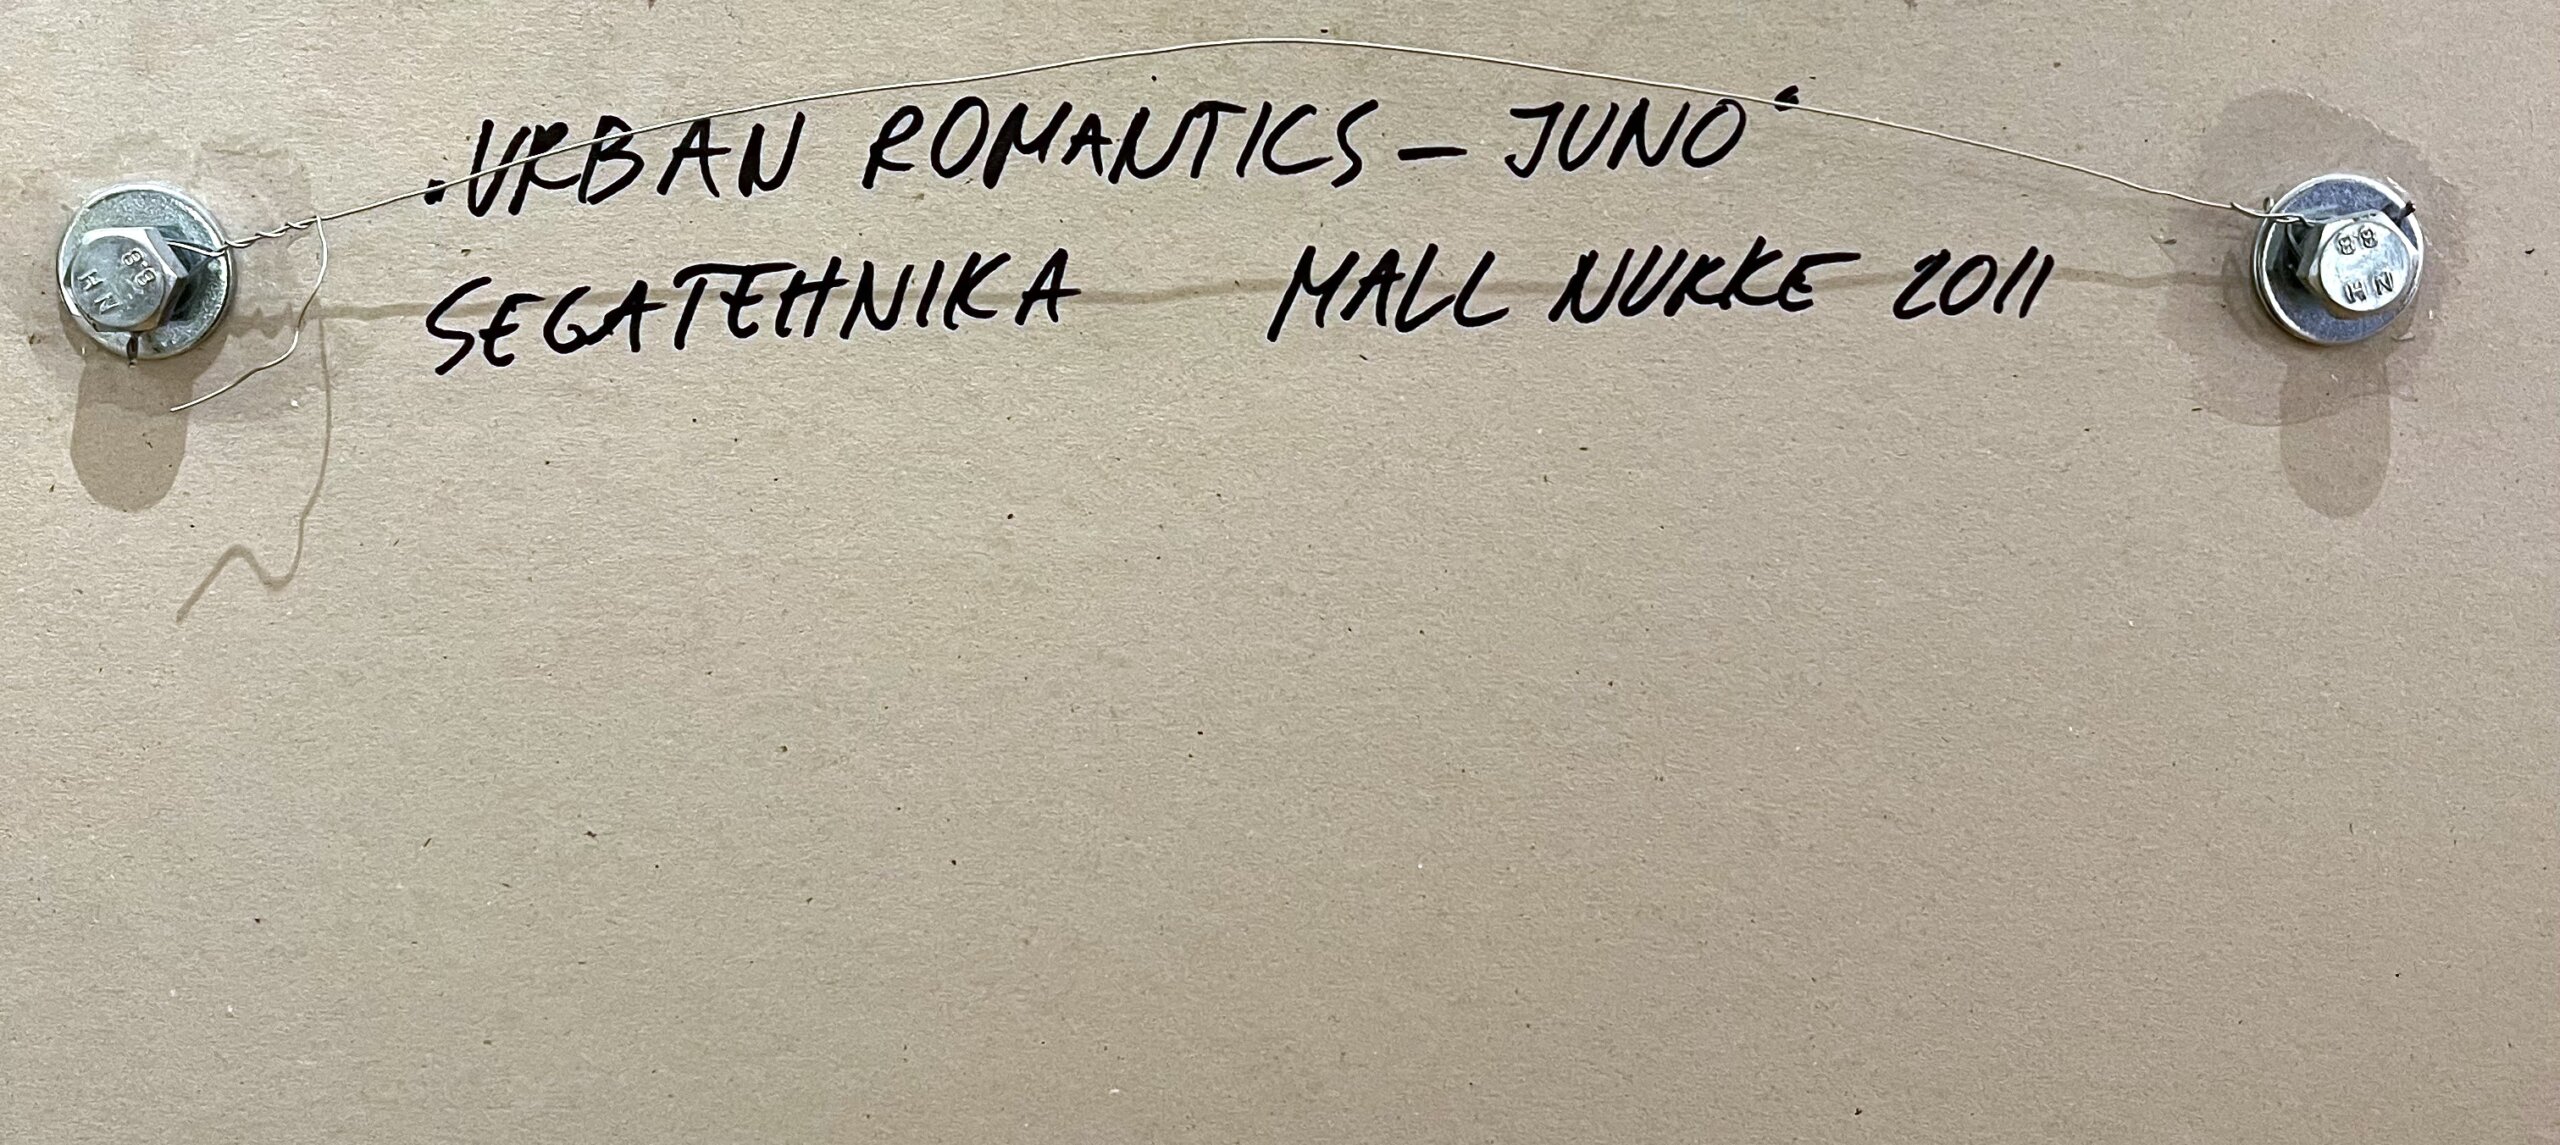 „URBAN ROMANTICS – JUNO“
SEGATEHNIKA MALL NUKKE 2011
8.8
NH
8.8
NH